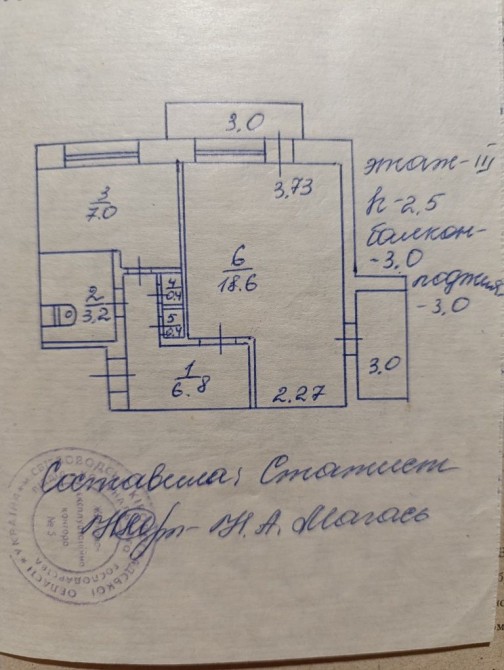 3,0
3,73
этаж-III
h-2,5
балкон-
-3,0
лоджия
-3,0
3
7.0
6
18.6
2
3,2
4
0,4
5
0,4
3,0
1
6.8
2.27
Составила: Статист
Н.А. Магась